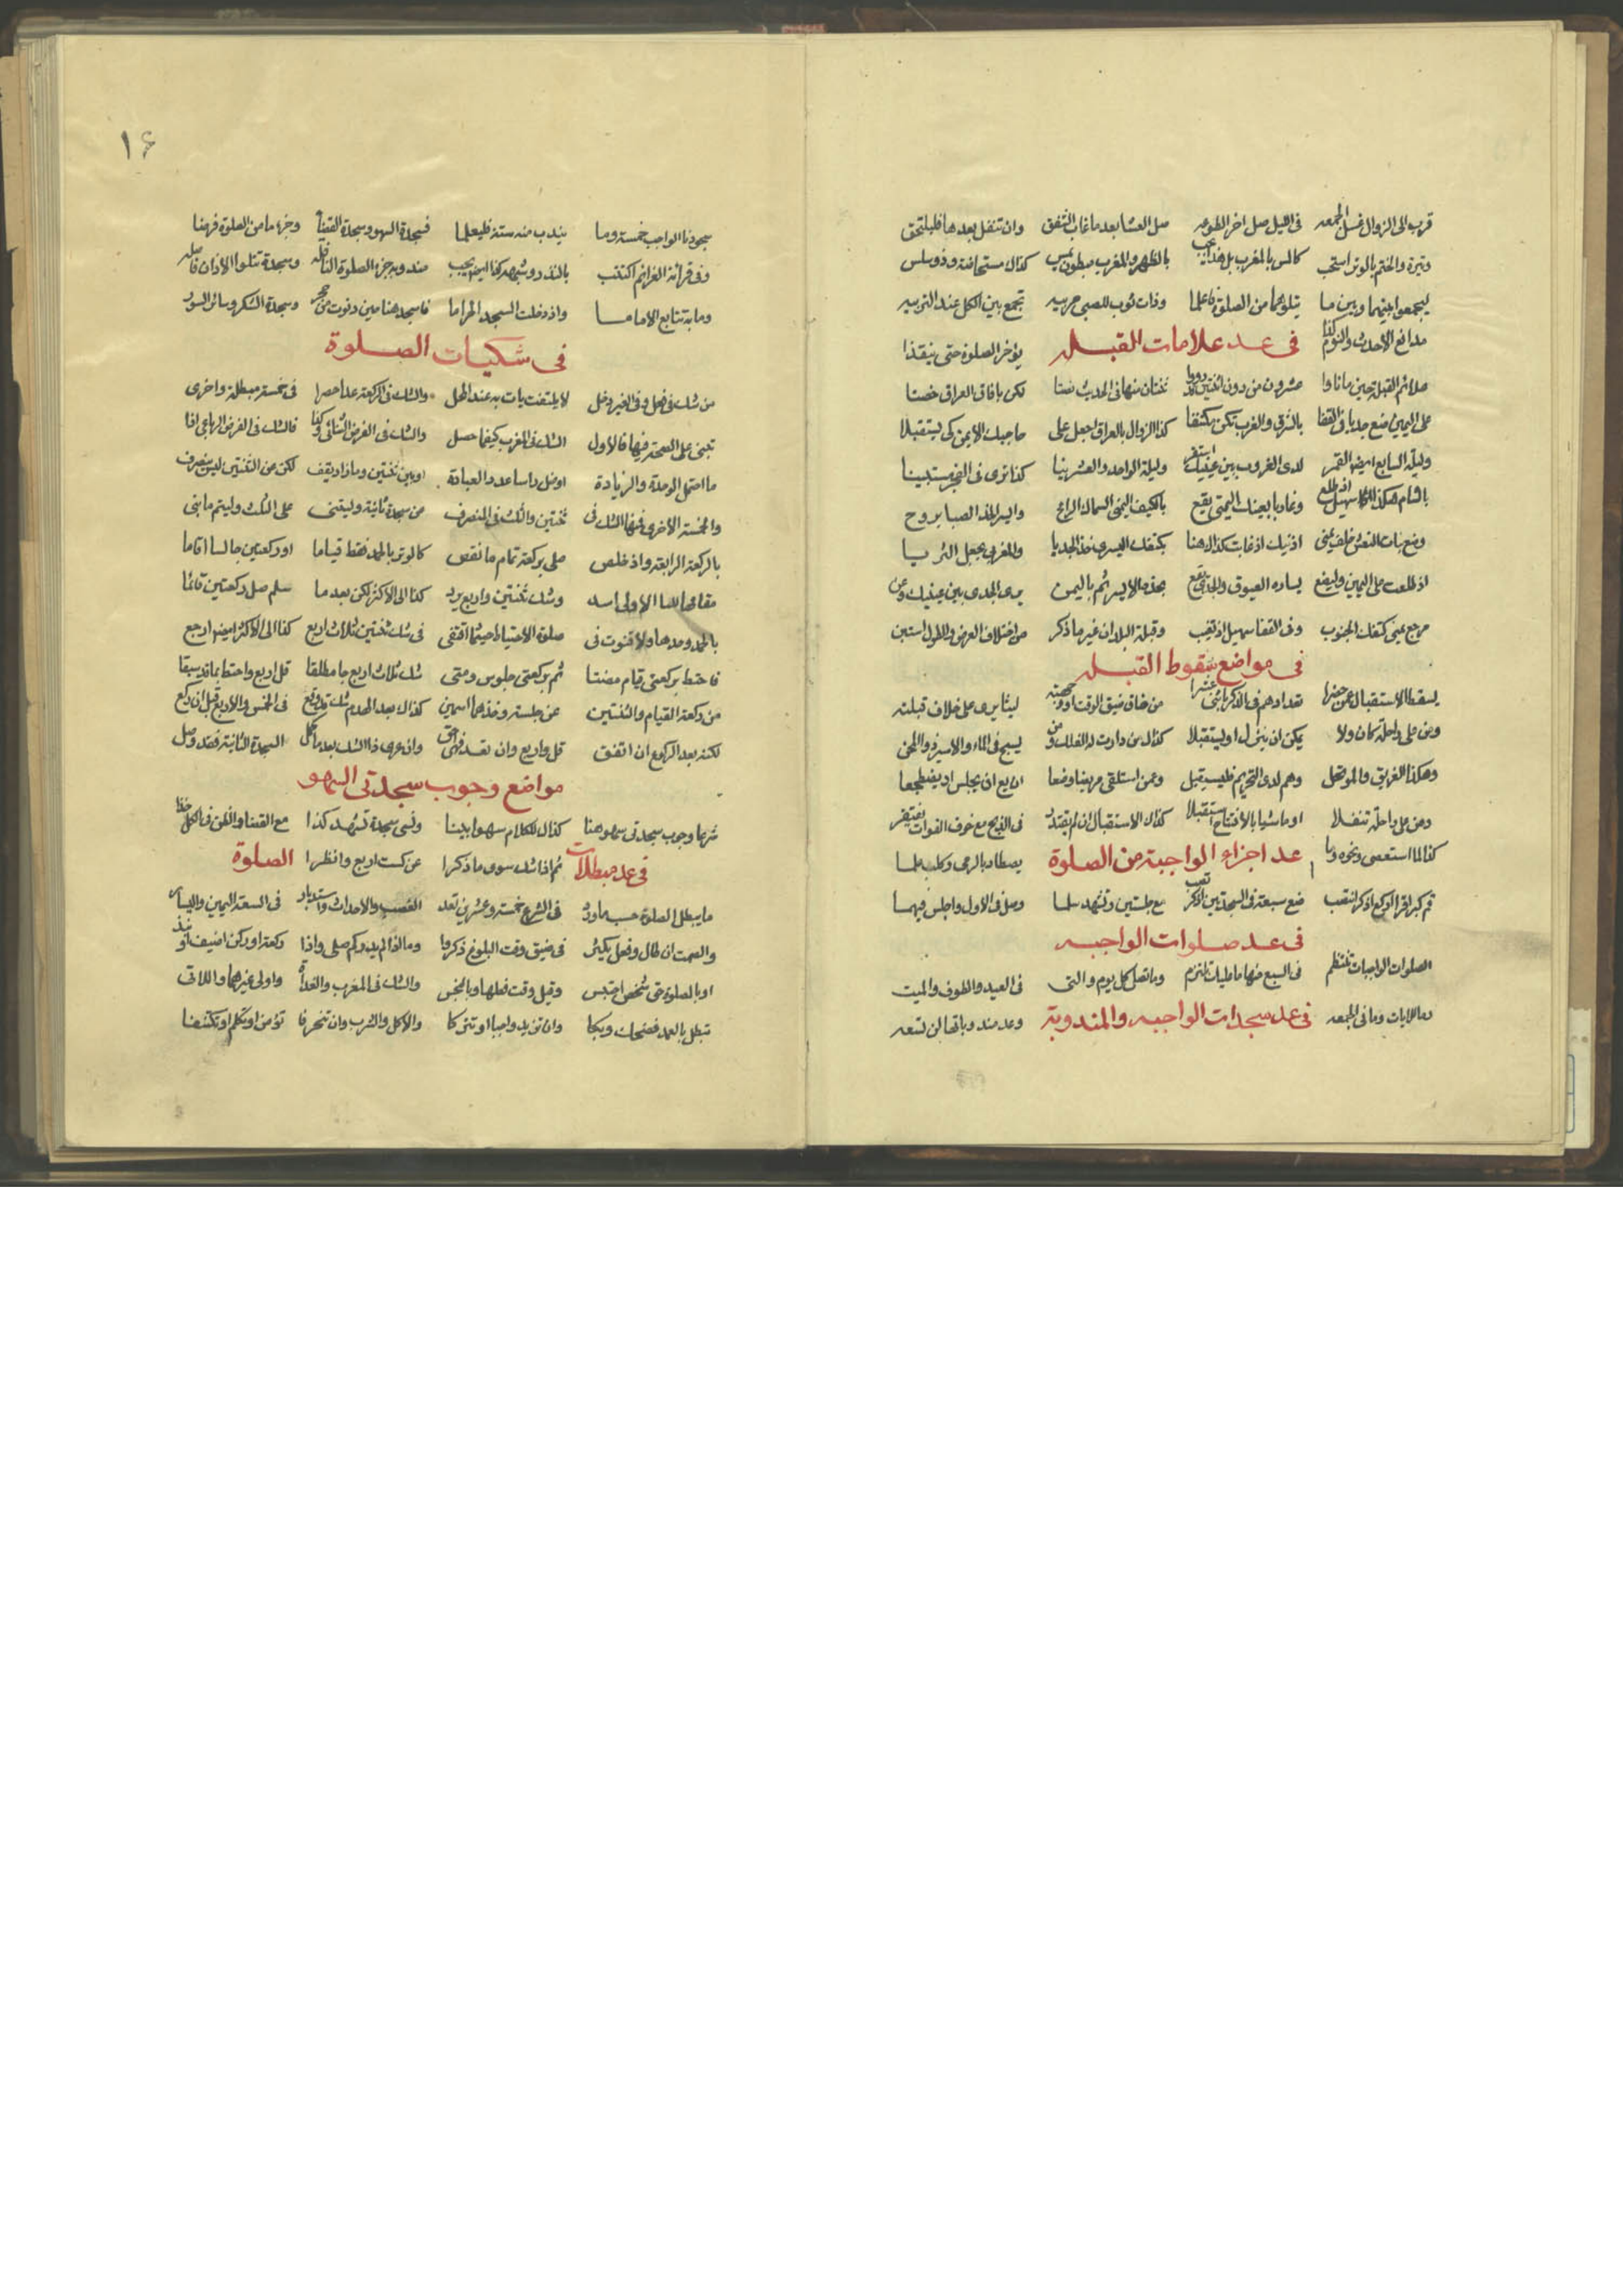 قرب الى الزوال غسل الجمعه فى الليل صل اخر الظوعه صل العشا بعد ما غاب الشفق وان تنفل بعدها فليلتحق
وتيرة والختم بالوتر استحب بالظهر والمغرب مبطون كذاك مستحاضة وذو سلس
ليجمعوا بينهما وبين ما يتلوهما من الصلوة فاعلما وذات ثوب للصبى مربيه تجمع بين الكل عند التربيه
مدافع الاحدث والنوم كذا فى عد علامات القبله يؤخر الصلوة حتى ينقذا
علائم القبلة حين ما نأوا عشرون من دون اثنتين ثنتان منها فى الحديث نصتا لكن بافاق العراق خصتا
على اليمين ضع جديا فى القفا بالشرق والغرب تكن مكتنفا كذا الزوال بالعراق اجعل على حاجبك الايمن كى تستقبلا
وليلة السابع ايضا القمر لدى الغروب بين عينيك استقر وليلة الواحد والعشرينا كذا ترى فى الفجر مستبينا
بالشام هكذا سهيل اذ طلع وغاربا بعينك اليمنى يقع بالكتف اليمنى السماك الرامح واليسر لهذه الصبا بروح
وضع بنات النعش خلف يمنى اذنيك اذ غابت كذاك هنا بكتفك اليسرى خذ الجديا والمغربى يجعل الثريا
اذ طلعت على اليمين وليضع يساره العيوق والجدى بخده الايسر ثم باليمن يرى الجدى بين عينيك وعن
مرجع يمنى كتفك الجنوب وفى القفا سهيل اذ تغيب وقبلة البلدان غير ما ذكر من اختلاف العرض والطول استبن
فى مواضع سقوط القبله
يسقط الاستقبال عن تعدادهم فى الذكر باثنى عشرا من خاف ضيق الوقت او وجهته ليثا يرى على خلاف قبلته
ومن على راحلة كان ولا يمكن ان ينزل او يستقبلا كذاك من دارت له الفلك ومن يسبح فى الماء والاسير
وهكذا الغريق والموتحل وهم لدى التحريم فليستقبل ومن استلقى مريضا وضعا ان يع ان يجلس او يضطجعا
ومن على راحلة تنفلا او ماشيا بالافتتاح استقبلا كذاك الاستقبال ان لم يقتدر فى الذبح مع خوف الفوات يغتفر
كذا لما استعصى ونحوه وما عد اجزاء الواجبة من الصلوة يصطاد بالرمى وكلب علما
قم كبر اقرا اركع اذكر انتصب ضع سبعة فى السجدتين اذكر مع جلستين وتشهد سلما وصل فى الاول واجلس فيهما
فى عد صلوات الواجبه
الصلوات الواجبات تنتظم فى السبع منها ما عليك تلتزم وما تصل كل يوم والتى فى العيد والطوف والميت
وما للايات وما فى الجمعه فى عد سجدات الواجبه والمندوبة وعد مندوباتها لن تسعه
١٦
سجودنا الواجب خمسة وما يندب منه ستة فليعلما فسجدة السهو وسجدة القضا وجزء ما من الصلوة فرضا
وفى قرائة العزائم اكتتب بالنذر منه وجزء الصلوة النافله وسجدة تتلوا الاذان فاصله
وما به تتابع الاماما واذ دخلت المسجد الحراما فاسجد هنا وسجدة الشكر وسائر السور
فى شكيات الصلوة
من شك فى فعل وفى الغير دخل لا يلتفت يات به عند المحل والشك فى الركعة عدا حصرا فى خمسة مبطلة واخرى
تبنى على الصحة فيها فالاول الشك فى المغرب كيفما حصل والشك فى الفرض الثنائى وكذا فالشك فى الفرض الرباعى اذا
ما احتمل الوحدة والزيادة او ضل راسا عدد العبادة او بين ثنتين وما زاد يقف لكن عن الثنتين ليس ينصرف
والخمسة الاخرى فيها الشك فى ثنتين والثلث فى المنصرف من سجدة ثانية وليبتنى على الثلث وليتم ما بنى
بالركعة الرابعة واذ خلص صلى بركعة تمام ما نقص كالوتر بالحمد فقط قياما او ركعتين جالسا اتاما
وشك ثنتين واربع يرد كذا الى الاكثر لكن بعد ما سلم صل ركعتين قائما
بالحمد وحدها ولا قنوت فى صلوة الاحتياط حيثما اقتفى فى شك ثنتين ثلاث اربع كذا الى الاكثر ايضا ارجع
فاحتط بركعتى قيام مضتا ثم بركعتى جلوس ومتى شك ثلاث اربع جا مطلقا قل اربع واحتط بما قد سبقا
من ركعة القيام والثنتين عن جلسة وخذهما اسمين كذاك بعد الهدم شك وقع فى الخمس والاربع قبل ان ركع
لكنه بعد الركوع ان اتفق قل واربع وان عرى ذا الشك بعد ما كمل السجدة الثانية فقد وصل
مواضع وجوب سجدتى السهو
شرعا وجوب سجدتى سهو هنا كذاك للكلام سهوا بينا ونسى سجدة تشهد كذا مع القضا والظن فى الكل خذا
فى عد مبطلات الصلوة ثم اذا شك سوى ما ذكرا عن كست اربع وانظرا
ما يبطل الصلوة حسبما ورد فى الشرع خمسة وعشرين تعد الغصب والاحداث واستدبار فى السعة اليمين واليسار
والصمت ان طال وفعل يكثر فى ضيق وقت البلوغ ذكروا وما اذا لم يدر كم صلى واذا ركعة او ركن اضيف او نبذ
او بالصلوة حق شخص احتبس وقبل وقت فعلها وبالنجس والشك فى المغرب والغداة واولى غيرها واللاتى
تبطل بالعمد فضحك وبكا وان تزيد واجبا او تتركا والاكل والشرب وان تنحرفا تؤمن او تكلم او تكتفا